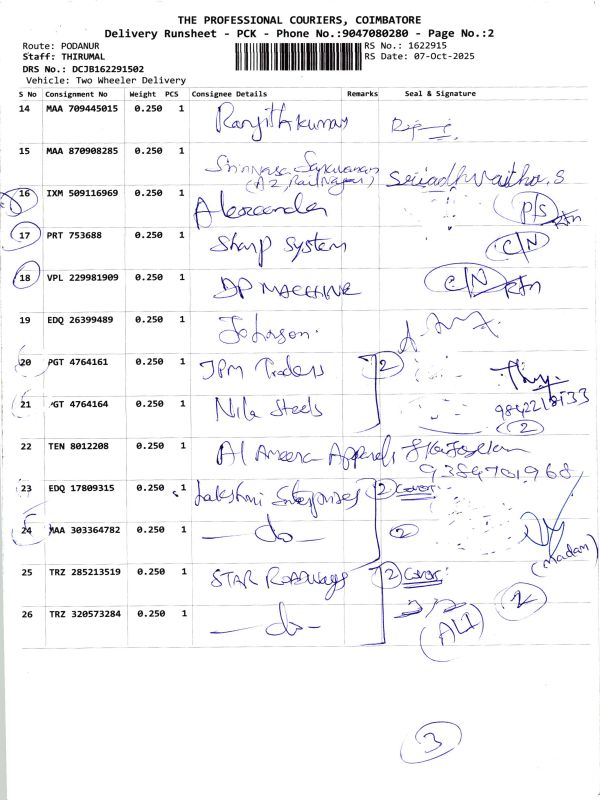 THE PROFESSIONAL COURIERS, COIMBATORE
Delivery Runsheet - PCK - Phone No.:9047080280 - Page No.:2
Route: PODANUR RS No.: 1622915
Staff: THIRUMAL RS Date: 07-Oct-2025
DRS No.: DCJB162291502
Vehicle: Two Wheeler Delivery
S No Consignment No Weight PCS Consignee Details Remarks Seal & Signature
14 MAA 709445015 0.250 1 Ranjithkumar
15 MAA 870908285 0.250 1 Srinivasa Saravanan
(A2, RailNagar) Sriadhvaitha.S
16 IXM 509116969 0.250 1 Alexander P/S Rtn
17 PRT 753688 0.250 1 Sharp System C/N
18 VPL 229981909 0.250 1 DP MACHINE C/N Rtn
19 EDQ 26399489 0.250 1 Johnson.
20 PGT 4764161 0.250 1 JPM Traders 2
21 PGT 4764164 0.250 1 Nila Steels 2
22 TEN 8012208 0.250 1 Al Ameera Apparels
9384701968
23 EDQ 17809315 1 0.250 1 Lakshmi Enterprises 2 Cover
24 MAA 303364782 0.250 1 — do — 2
(madam)
25 TRZ 285213519 0.250 1 STAR ROADWAYS 2 Cover
26 TRZ 320573284 0.250 1 — do — 2
(ALI)
3